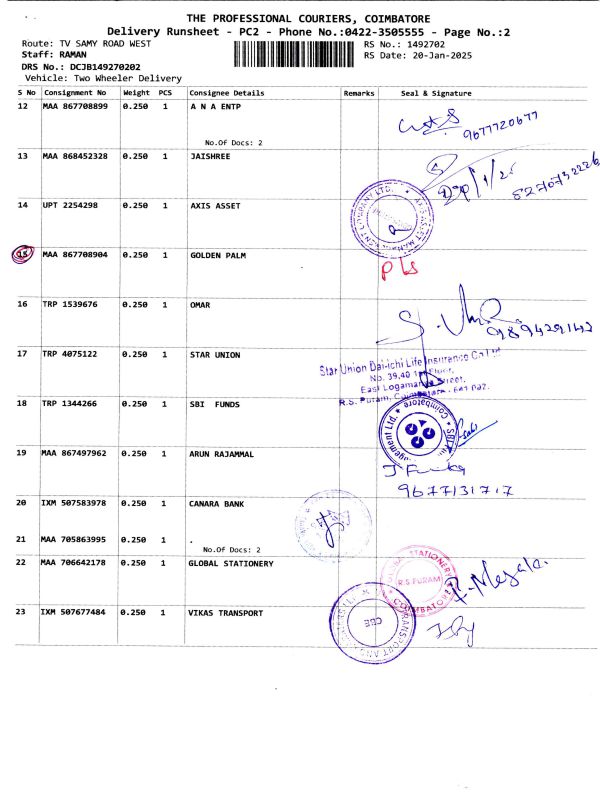 THE PROFESSIONAL COURIERS, COIMBATORE
Delivery Runsheet - PC2 - Phone No.:0422-3505555 - Page No.:2
Route: TV SAMY ROAD WEST RS No.: 1492702
Staff: RAMAN RS Date: 20-Jan-2025
DRS No.: DCJB149270202
Vehicle: Two Wheeler Delivery
S No Consignment No Weight PCS Consignee Details Remarks Seal & Signature
12 MAA 867708899 0.250 1 A N A ENTP
9677720677
No.Of Docs: 2
13 MAA 868452328 0.250 1 JAISHREE
8270732226
14 UPT 2254298 0.250 1 AXIS ASSET
15 MAA 867708904 0.250 1 GOLDEN PALM
PLS
16 TRP 1539676 0.250 1 OMAR
9894291142
17 TRP 4075122 0.250 1 STAR UNION
Star Union Dai-ichi Life Insurance Co Ltd
No. 39,40 1st Floor,
East Logamanya Street,
R.S. Puram, Coimbatore - 641 002.
18 TRP 1344266 0.250 1 SBI FUNDS
19 MAA 867497962 0.250 1 ARUN RAJAMMAL
9677131717
20 IXM 507583978 0.250 1 CANARA BANK
21 MAA 705863995 0.250 1 .
No.Of Docs: 2
22 MAA 706642178 0.250 1 GLOBAL STATIONERY
GLOBAL STATIONERY
R.S PURAM
COIMBATORE
P. Megala.
23 IXM 507677484 0.250 1 VIKAS TRANSPORT
CBE